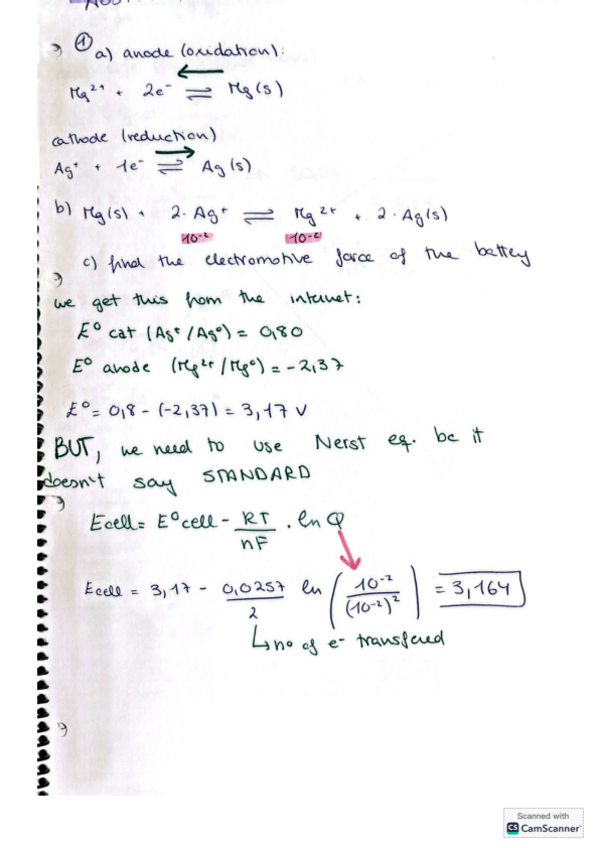 ① a) anode (oxidation):
Mg²⁺ + 2e⁻ ⇌ Mg(s)
cathode (reduction)
Ag⁺ + 1e⁻ ⇌ Ag(s)
b) Mg(s) + 2·Ag⁺ ⇌ Mg²⁺ + 2·Ag(s)
10⁻² 10⁻²
c) find the electromotive force of the battery
we get this from the internet:
E° cat (Ag⁺/Ag°) = 0,80
E° anode (Mg²⁺/Mg°) = -2,37
E° = 0,8 - (-2,37) = 3,17 V
BUT, we need to use Nerst eq. bc it
doesn't say STANDARD
Ecell = E°cell - RT/nF · ln Q
Ecell = 3,17 - 0,0257/2 ln (10⁻²/(10⁻²)²) = 3,164
↳ no of e⁻ transfered
Scanned with
CS CamScanner